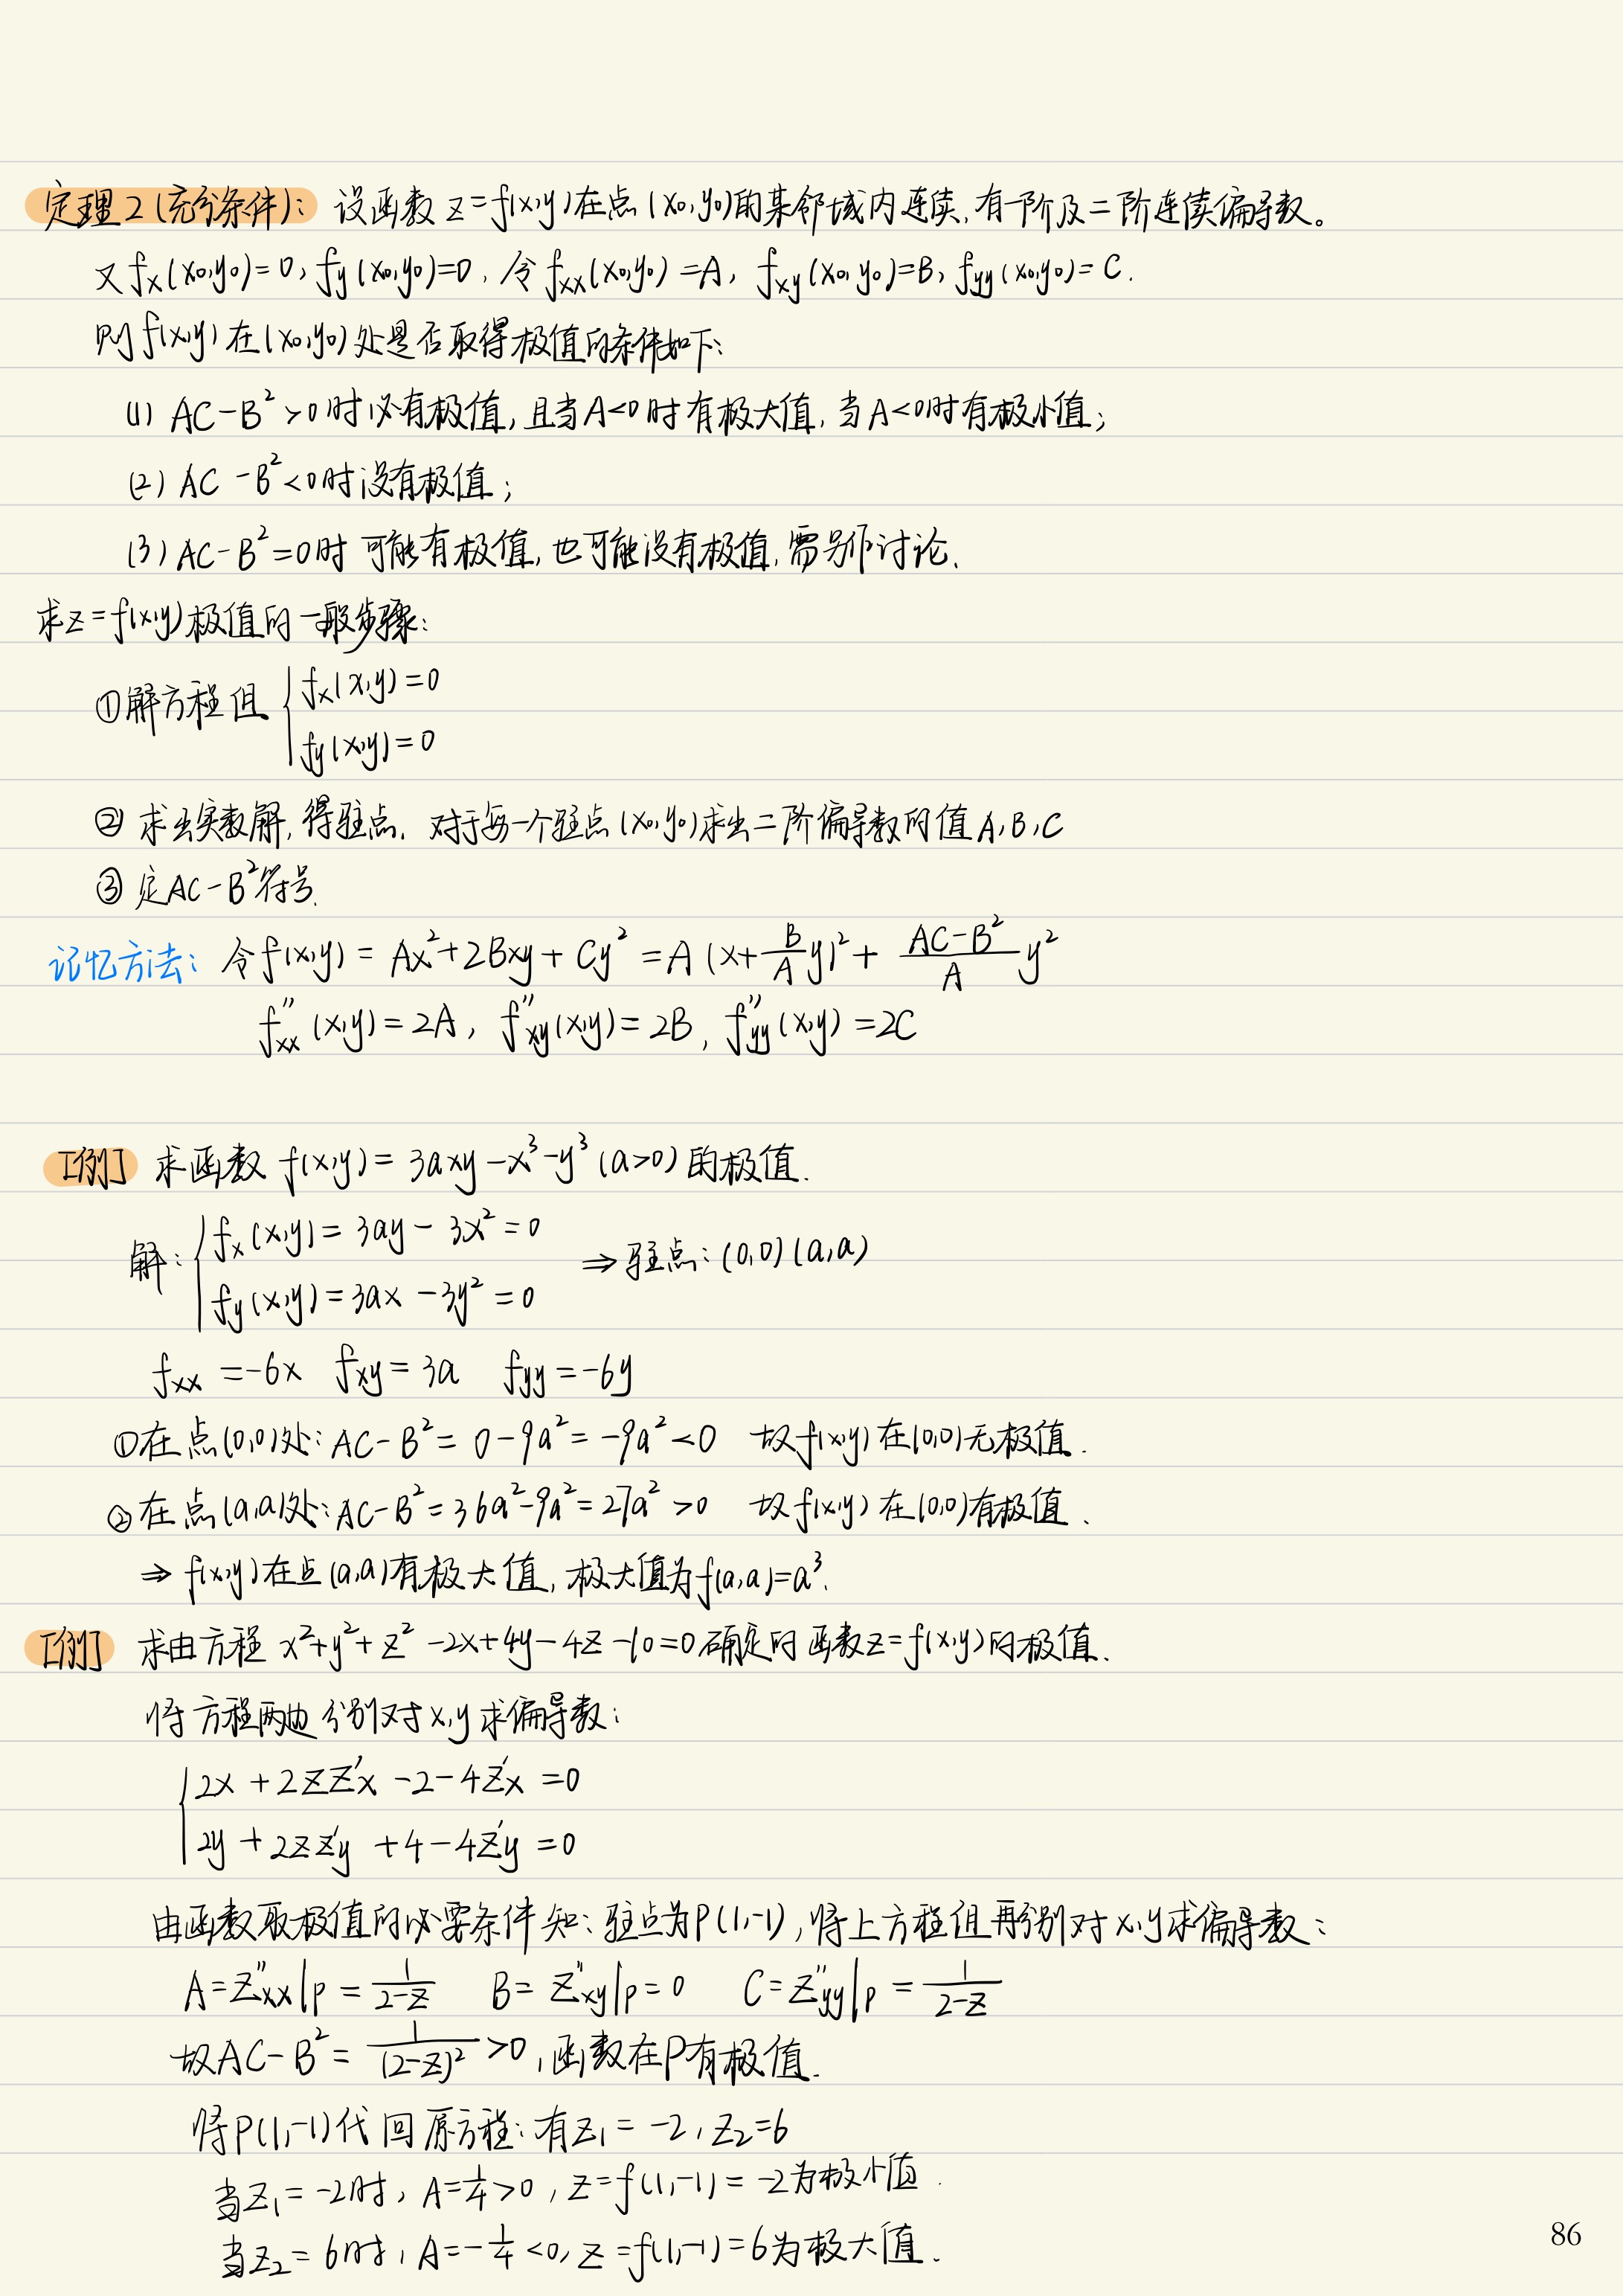 定理2(充分条件): 设函数 z=f(x,y)在点(x₀,y₀)的某邻域内连续,有一阶及二阶连续偏导数。
又fx(x₀,y₀)=0, fy(x₀,y₀)=0, 令 fxx(x₀,y₀)=A, fxy(x₀,y₀)=B, fyy(x₀,y₀)=C.
则f(x,y)在(x₀,y₀)处是否取得极值的条件如下:
(1) AC-B²>0时必有极值,且当A<0时有极大值,当A<0时有极小值;
(2) AC-B²<0时没有极值;
(3) AC-B²=0时 可能有极值,也可能没有极值,需另作讨论.
求z=f(x,y)极值的一般步骤:
①解方程组 { fx(x,y)=0
fy(x,y)=0
② 求出实数解,得驻点. 对于每一个驻点(x₀,y₀)求出二阶偏导数的值A,B,C
③ 定AC-B²符号.
记忆方法: 令f(x,y) = Ax²+2Bxy+Cy² = A(x+\frac{B}{A}y)²+\frac{AC-B²}{A}y²
f''xx(x,y)=2A, f''xy(x,y)=2B, f''yy(x,y)=2C
[例] 求函数 f(x,y)= 3axy-x³-y³(a>0)的极值.
解: { fx(x,y)= 3ay-3x²=0 ⇒驻点:(0,0)(a,a)
fy(x,y)=3ax-3y²=0
fxx=-6x fxy=3a fyy=-6y
①在点(0,0)处: AC-B²= 0-9a²=-9a²<0 故f(x,y)在(0,0)无极值.
②在点(a,a)处: AC-B²=36a²-9a²=27a²>0 故f(x,y)在(0,0)有极值.
⇒ f(x,y)在点(a,a)有极大值,极大值为f(a,a)=a³.
[例] 求由方程 x²+y²+z²-2x+4y-4z-10=0确定的函数z=f(x,y)的极值.
将方程两边分别对x,y求偏导数:
{ 2x+2zz'x-2-4z'x=0
2y+2zz'y+4-4z'y=0
由函数取极值的必要条件知:驻点为P(1,-1),将上方程组再分别对x,y求偏导数:
A=z''xx|p=\frac{1}{2-z} B=z''xy|p=0 C=z''yy|p=\frac{1}{2-z}
故AC-B²=\frac{1}{(2-z)²}>0,函数在P有极值.
将P(1,-1)代回原方程:有z₁=-2,z₂=6
当z₁=-2时, A=\frac{1}{4}>0, z=f(1,-1)=-2为极小值.
当z₂=6时, A=-\frac{1}{4}<0, z=f(1,-1)=6为极大值.
86